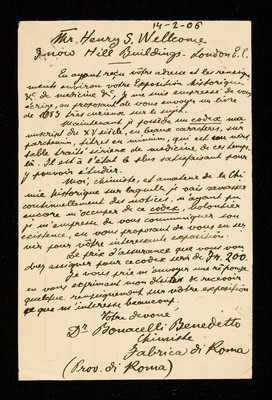 14-2-06
Mr. Henry S. Wellcome
Snow Hill Buildings - London E.C.
En ayant reçu votre adresse et les renseign-
ments environ votre Exposition historique
&c. de médicine &c., je me suis empressé de vous
écrire, en proposant de vous envoyer un livre
de 1683 très curieux sur le sujet.
Maintenant je possède un codex ma-
nuscript du XV siècle, en beaux caractères, sur
parchemin, titres en minium, qui est un véri-
table traité sérieux de médicine de ces temps
là. Il est à l'état le plus satisfaisant pour
y pouvoir étudier.
Moi, chimiste, et amateur de la Chi-
mie historique sur laquelle je vais ramasser
continuellement des notices, n'ayant pu
encore m'occuper de ce codex, volontier
je m'empresse de vous communiquer son
existence, en vous proposant de vous en ser-
vir pour vôtre interessante exposition.
Le prix d'assurance que vous vou-
drez assigner pour ce codex sera de fr. 200.
Je vous prie m'envoyer une réponse
en vous exprimant mon désir de recevoir
quelque renseignement sur vôtre exposition
ce que m'interesse beaucoup.
Votre dévoué
Dr. Bonacelli Benedetto
Chimiste
Fabrica di Roma
(Prov. di Roma)